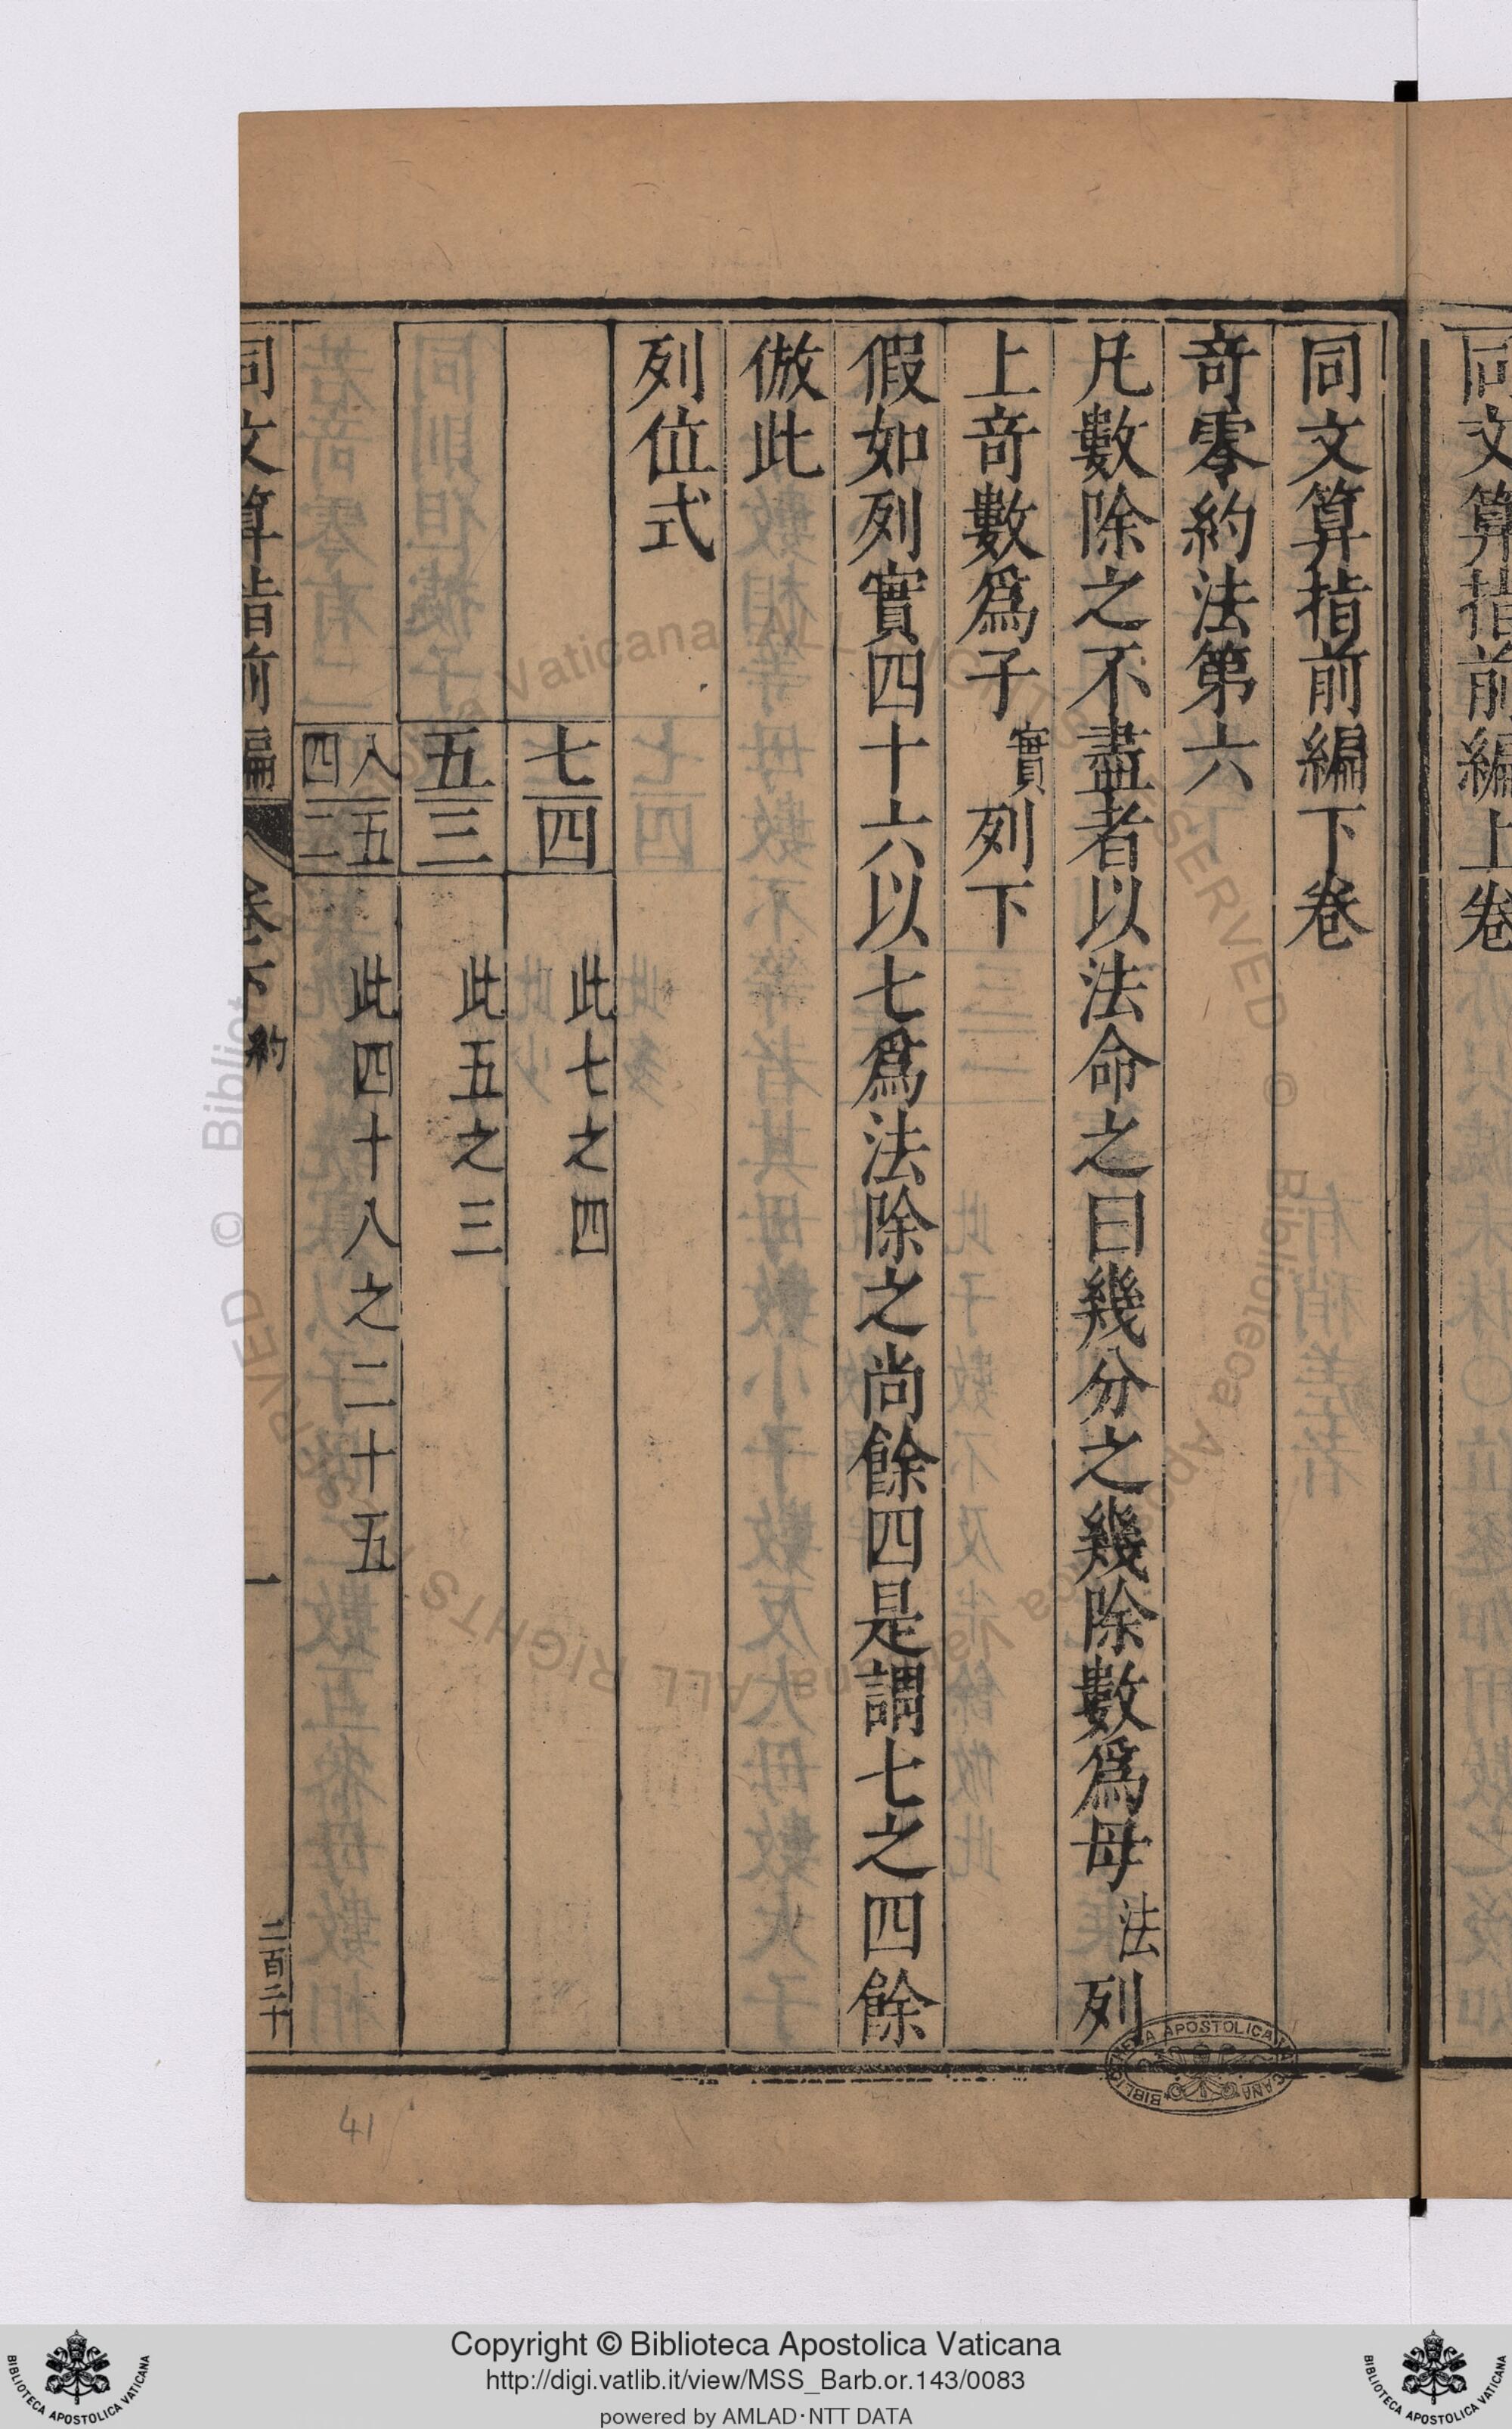 同文算指前編上卷
同文算指前編下卷
奇零約法第六
凡數除之不盡者以法命之曰幾分之幾除數爲母法列
上奇數爲子實列下
假如列實四十六以七爲法除之尚餘四是謂七之四餘
倣此
列位式
七
四
此七之四
五
三
此五之三
四八
二五
此四十八之二十五
同文算指前編 卷下 約 一 二百二十
41
BIBLIOTHECA APOSTOLICA VATICANA
© Biblioteca Apostolica Vaticana ALL RIGHTS RESERVED © Biblioteca Apostolica Vaticana ALL RIGHTS RESERVED
Copyright © Biblioteca Apostolica Vaticana
http://digi.vatlib.it/view/MSS_Barb.or.143/0083
powered by AMLAD·NTT DATA
BIBLIOTECA APOSTOLICA VATICANA
BIBLIOTECA APOSTOLICA VATICANA